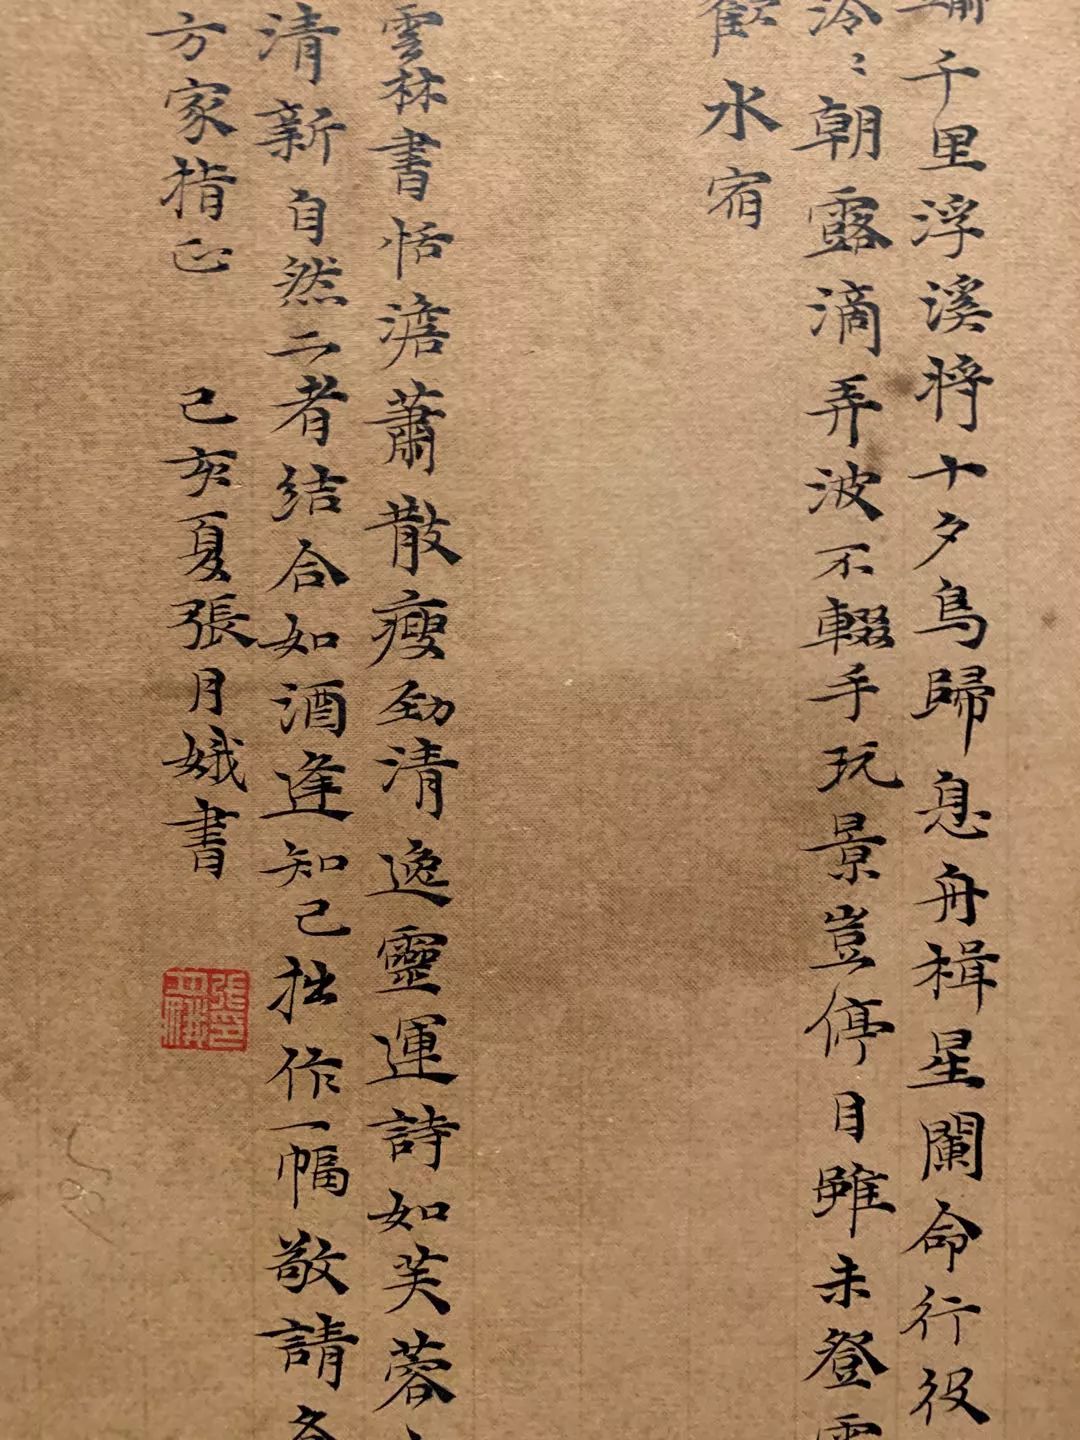 千里浮溪將十夕鳥歸息舟楫星闌命行役
泠〻朝露滴弄波不輟手玩景豈停目雖未登
水宿
雲林書恬澹蕭散瘦勁清逸靈運詩如芙蓉
清新自然二者結合如酒逢知己拙作一幅敬請
方家指正 己亥夏張月娥書